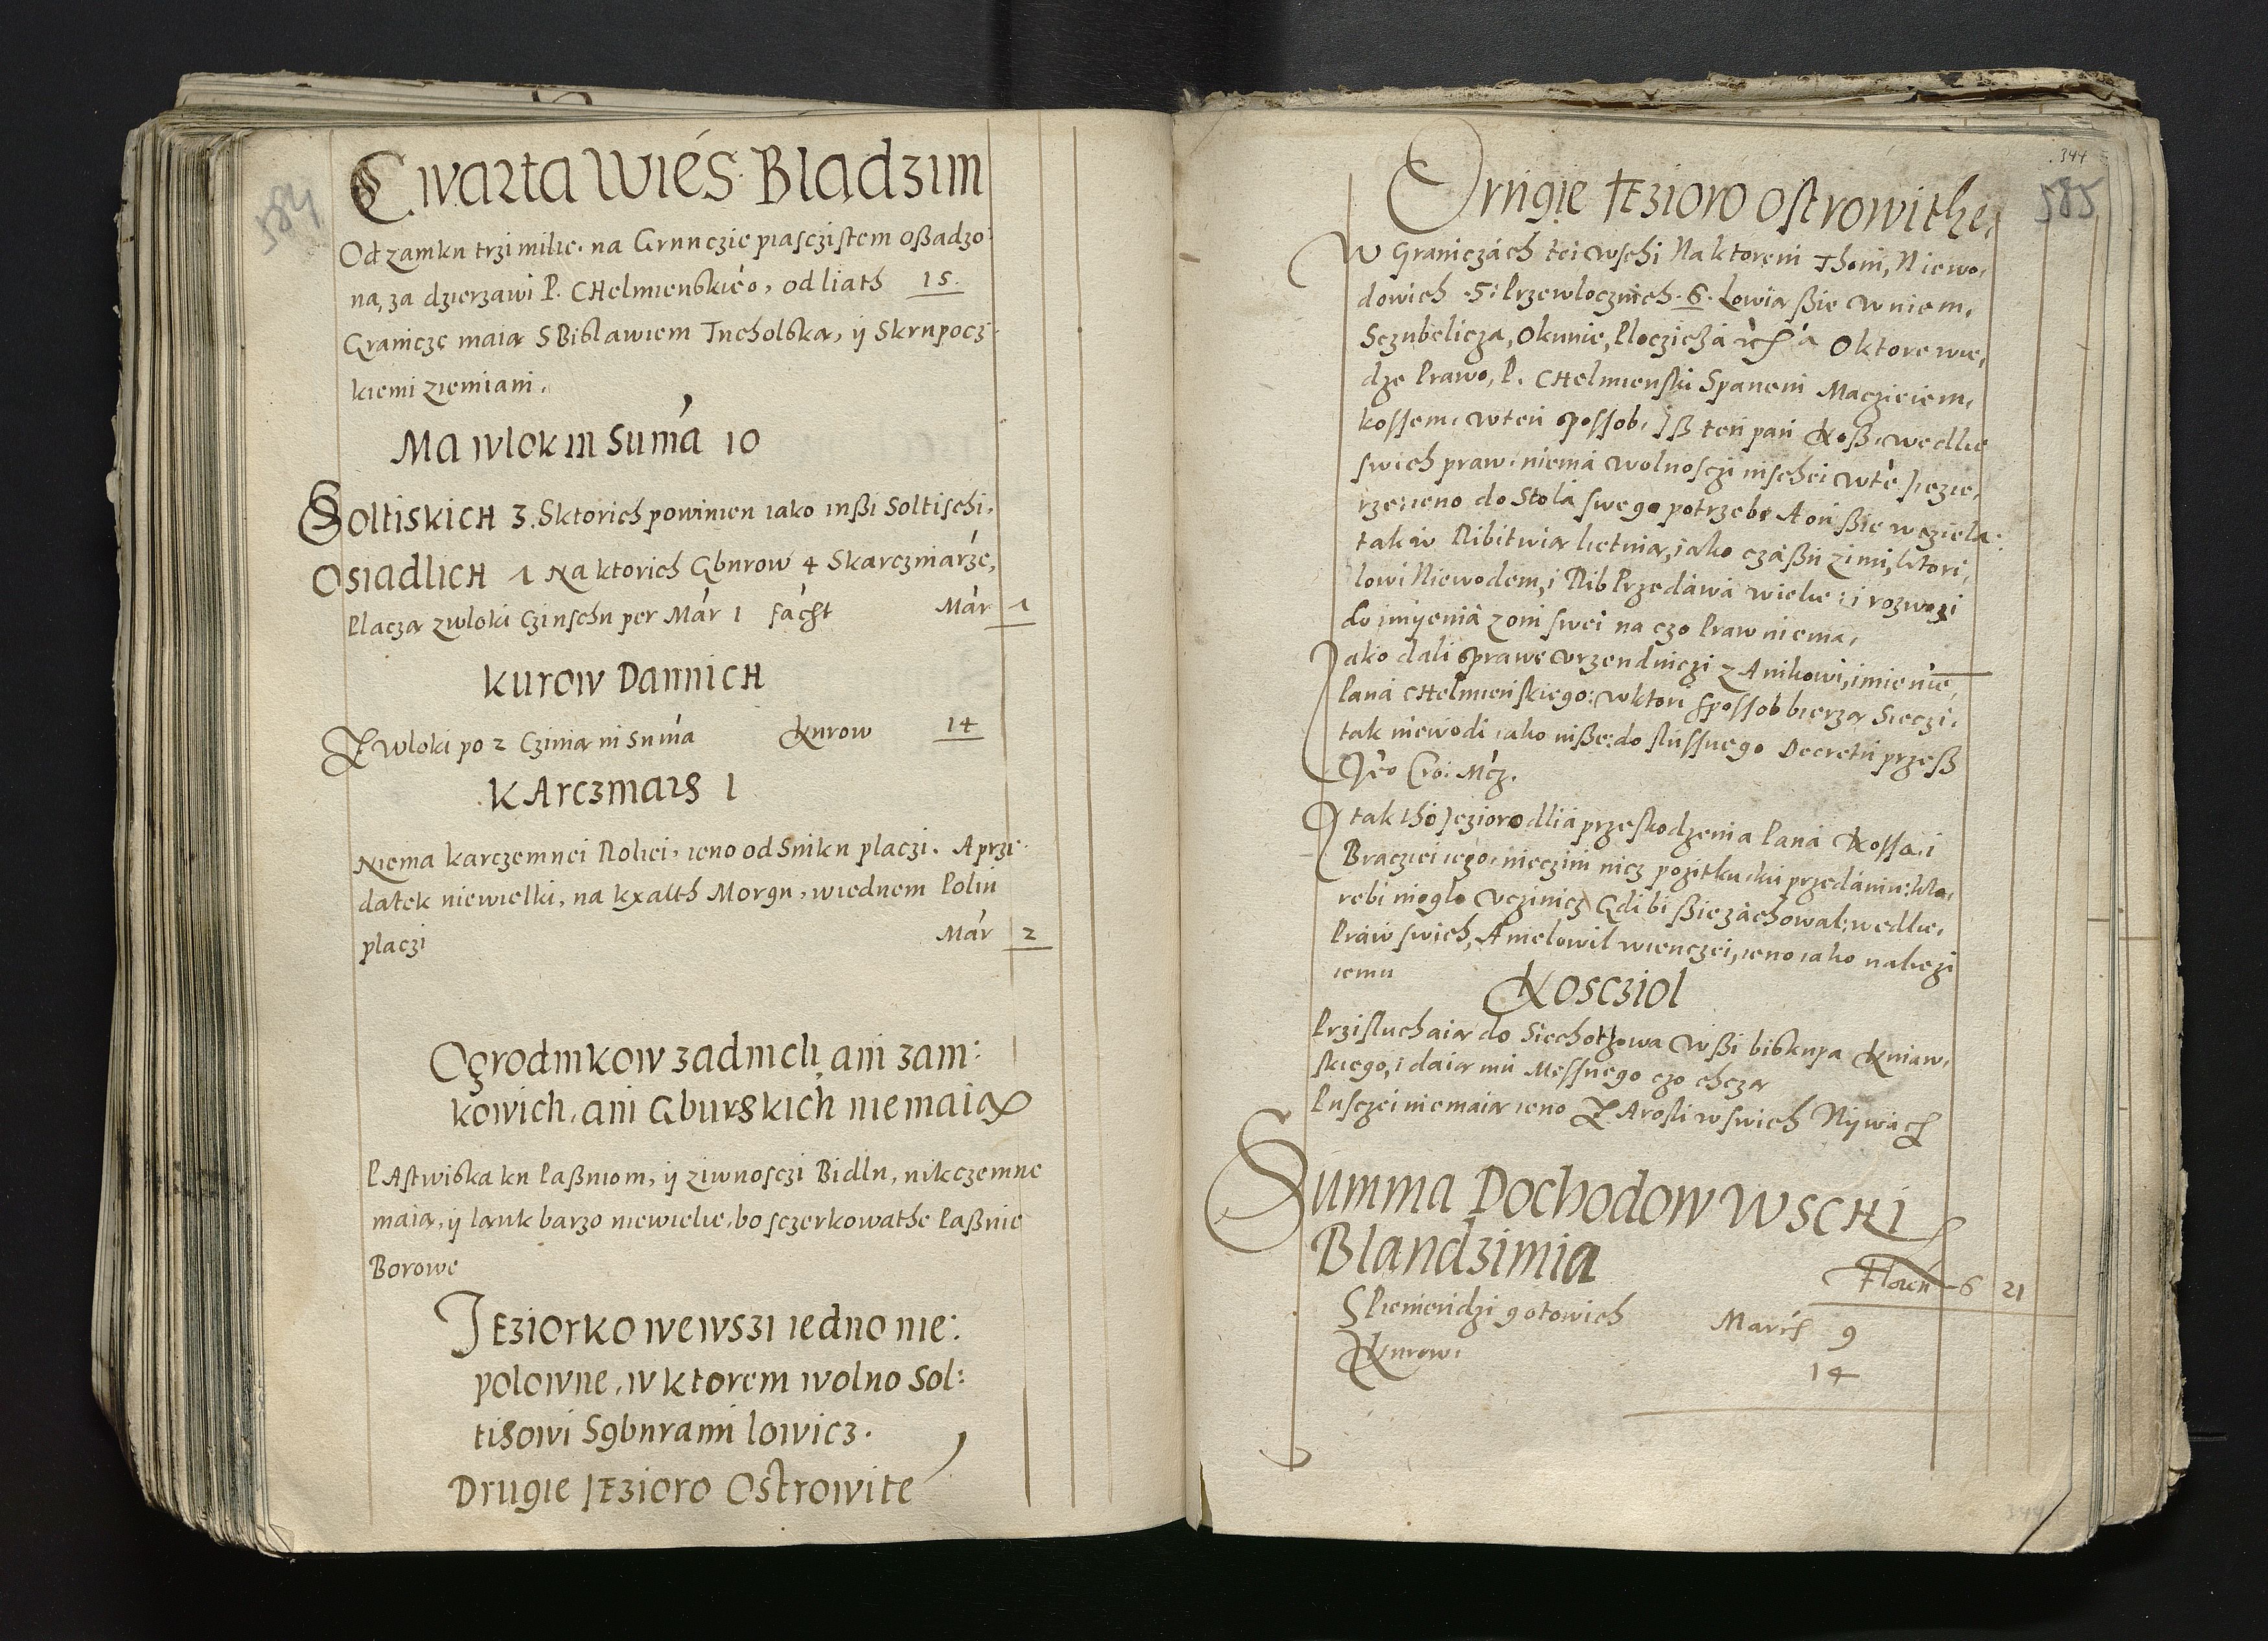 584
Cwarta Wiés Bladzim
Od zamku trzi milie. na Grunczie piasczistem oßadzo:
na, za dzierzawi P. CHelmienskiéo, od liath 15.
Granicze maia SBislawiem Tucholska, ij Skrupocz:
kiemi ziemiani.
Ma wlok in Suma 10
Soltiskich 3. Sktorich powinien iako inßi Soltischi.
Osiadlich 1 Na ktorich Gburow 4 Skarczmarze,
Placza zwloki Czinschu per Mar 1 facht Mar 1
Kurow Dannich
Z Wloki po 2 Czinia in Suma Kurow 14
Karczmars 1
Niema karczemnei Roliei, ieno od Sniku placzi. A przi:
datek niewielki, na kxalth Morgu, wiednem Poliu
placzi Mar 2
Ogrodnikow zadnich, ani zam:
kowich, ani Gburskich nie maia
PAstwiska ku Paßniom, ij ziwnosczi Bidlu, nikczemne
maia, ij lauk barzo niewielie, bo sczerkowathe Paßnie
Borowe
JEziorko we wszi iedno nie:
polowne, w ktorem wolno Sol:
tisowi Sgburami lowicz.
Drugie JEzioro Ostrowite
344
585
Drugie JEzioro Ostrowithe,
W Graniczách tei wschi Na ktorem Thoni, Niewo,
dowich .5: Przewlocznich .6. Lowia ßie w niem,
Sczubelicza, Okunie, Ploczicza O ktore wie,
dze Prawo, P. CHelmienski Spanem Macziciem,
kossem, wten sposſob, Jß ten pan Koß, wedlie
swich praw, niema wolnosczi nischei wte Jezie,
rze: ieno do Stola swego potrzebe A on ßie wcziela:
tak w Ribitwia lietnia, iako czaßu zimi, ktori,
lowi Niewodem, i Rib Przedáwa wielie: i rozwozi
do imienia zoni swei na czo Praw niema,
Jako dali sprawe vrzendniczi z Anikowi, imienie,
Pana CHelmienskiego: w ktori sposſob bierza Sieczi,
tak niewodi iako niße: do slusſnego Decretu przeß
Jeo Cro: Mcz.
J tak tho Jezioro dlia przeskodzenia Pana Kossa, i
Bracziei iego, nieczini nicz pozitku, ku przedaniu: kto,
rebi moglo vczinicz Gdi bi ßie záchowal: wedlie,
Praw swich, A nie lowil wienczei, ieno iako naliezi
iemu
Kosczioł
Przisluchaia do Siechotzowa Wßi biskupa Kuiaw,
skiego, i daia mu Messnego czo chcza
Pusczei niemaia ieno ZArosli w swich Nijwach
Summa Dochodow WSCHi
Blandzimia
Floren 6 21
S Pieniendzi gotowich Marcs 9
Kurow. 14